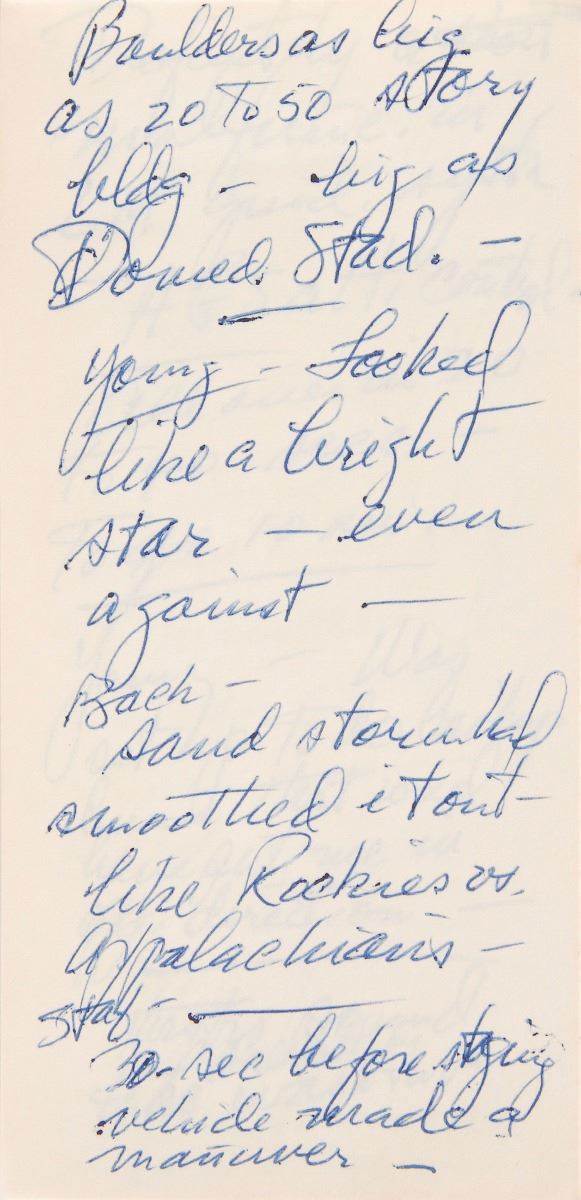 Boulders as big
as 20 To 50 story
bldg - big as
Domed Stad. -
Young - Looked
like a bright
star - even
against -
Back -
sand storm had
smoothed it out -
like Rockies vs.
Appalachians -
Staf -
30-sec before staging
vehicle made a
manuver -